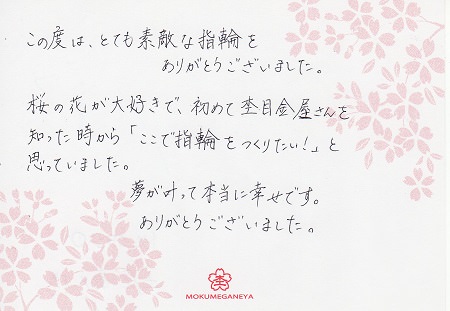 この度は、とても素敵な指輪を
ありがとうございました。
桜の花が大好きで、初めて杢目金屋さんを
知った時から「ここで指輪をつくりたい！」と
思っていました。
夢が叶って本当に幸せです。
ありがとうございました。
杢
MOKUMEGANEYA